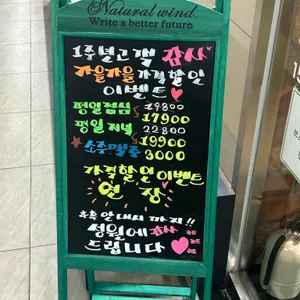 Natural wind
Write a better future
1주년 고객 감사
가을가을 가격할인
이벤트
평일점심 19800
17900
평일저녁 22800
19900
소주맥주 3000
가격할인 이벤트
연장
추후 안내시 까지!!
성원에 감사
드립니다